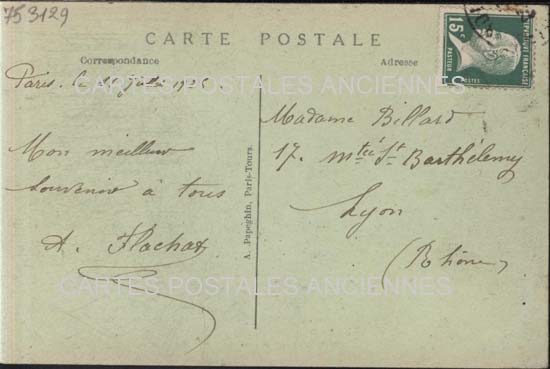 753129
CARTE POSTALE
Correspondance
Adresse
15c
REPUBLIQUE FRANÇAISE
PASTEUR
POSTES
Paris. le Juillet
Mon meilleur
Souvenir à tous
A. Flachat
A. Papeghin, Paris-Tours.
Madame Billard
17. mtée St Barthélemy
Lyon
(Rhône)
CARTES POSTALES ANCIENNES
CARTES POSTALES ANCIENNES